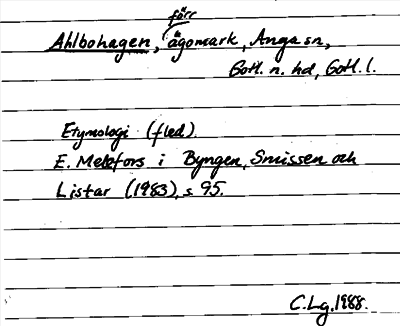 förr
Ahlbohagen, ägomark, Anga sn,
Gotl. n. hd, Gotl. l.
Etymologi (fled).
E. Melefors i Byngen, Smissen och
Listar (1983), s 95.
C.Lg. 1988.